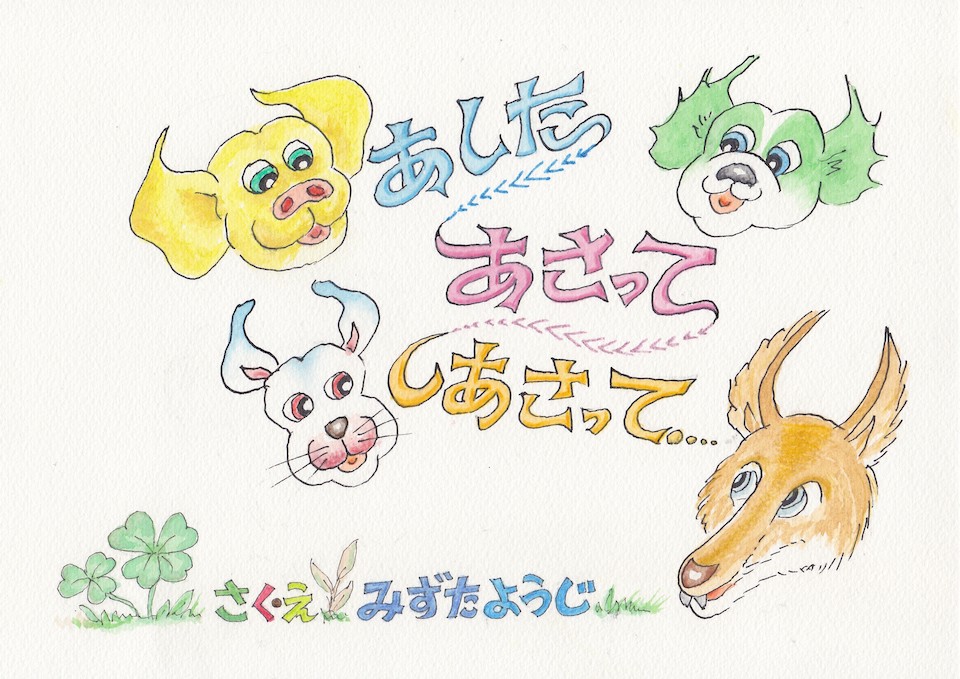 あした
あさって
しあさって....
さく・え みずたようじ